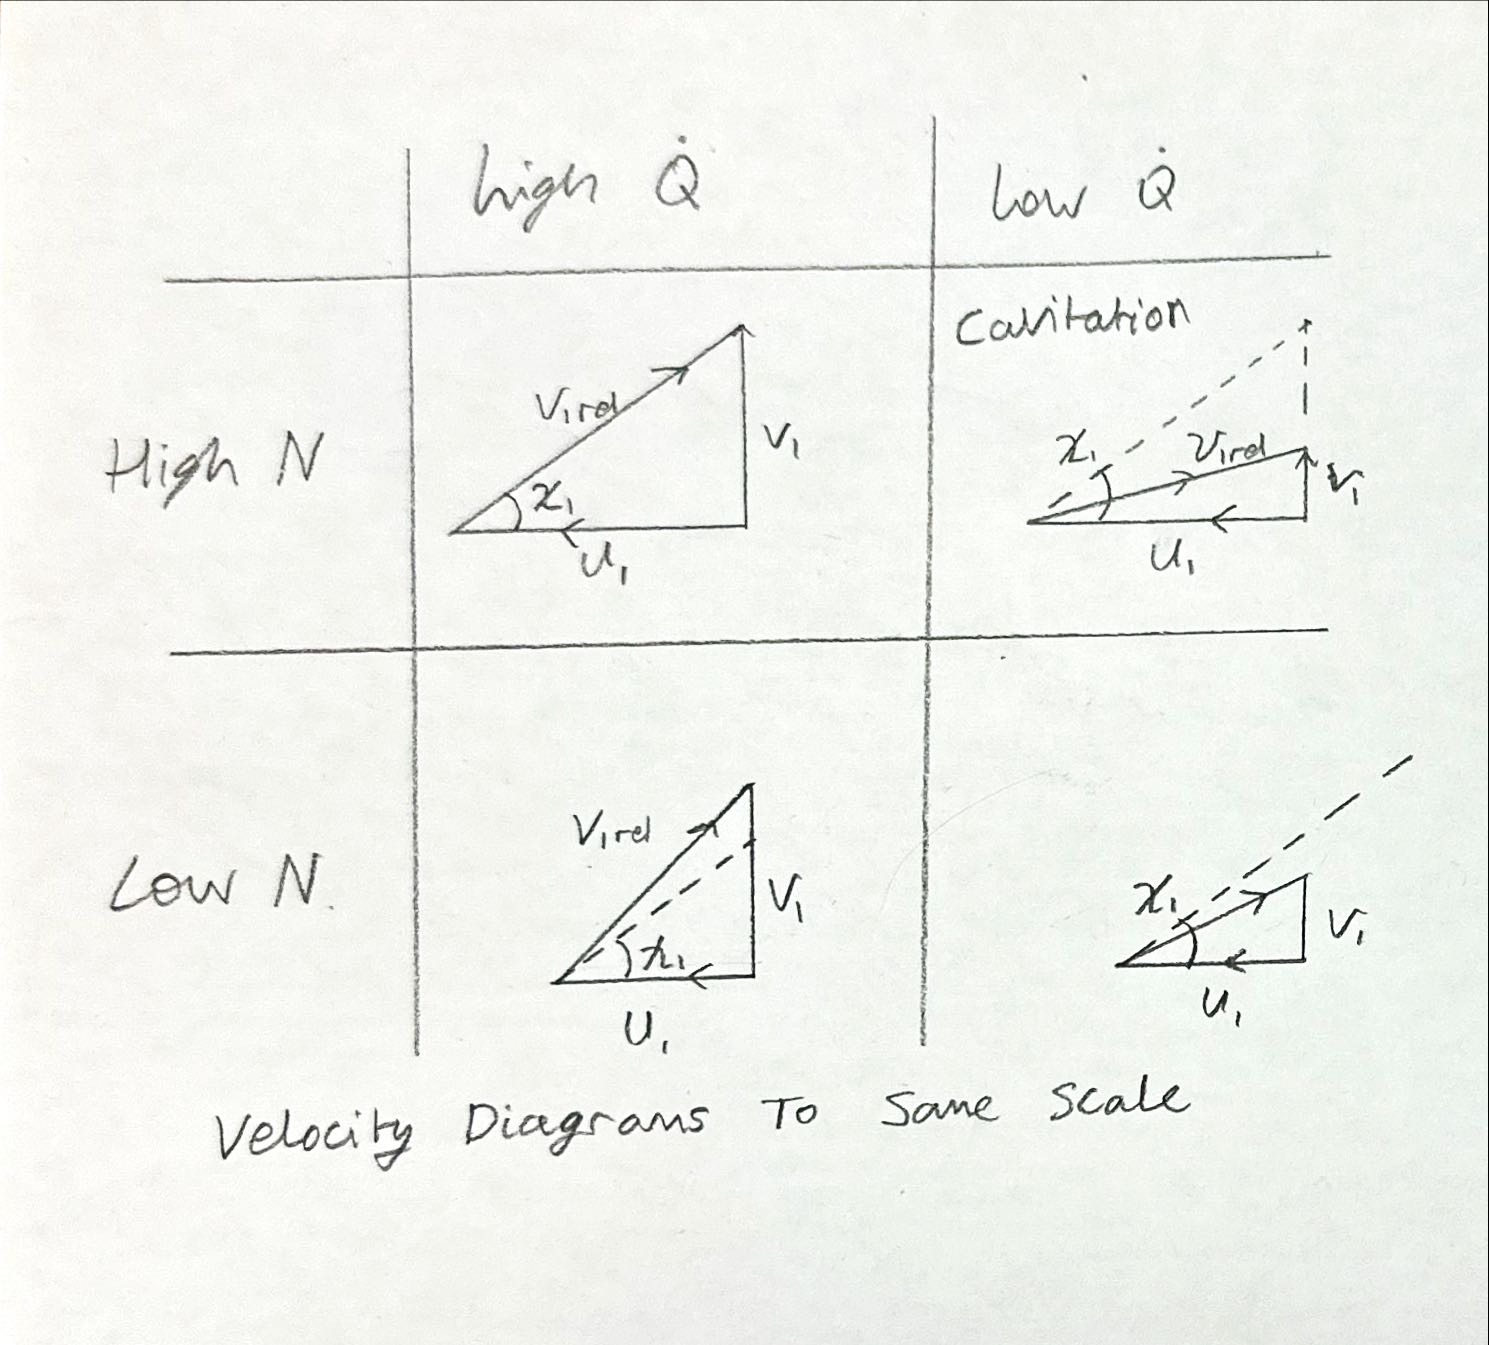 high Q̇
Low Q̇
High N
V₁rel
x₁
V₁
U₁
Cavitation
x₁
V₁rel
V₁
U₁
Low N.
V₁rel
x₁
V₁
U₁
x₁
V₁
U₁
Velocity Diagrams To Same Scale